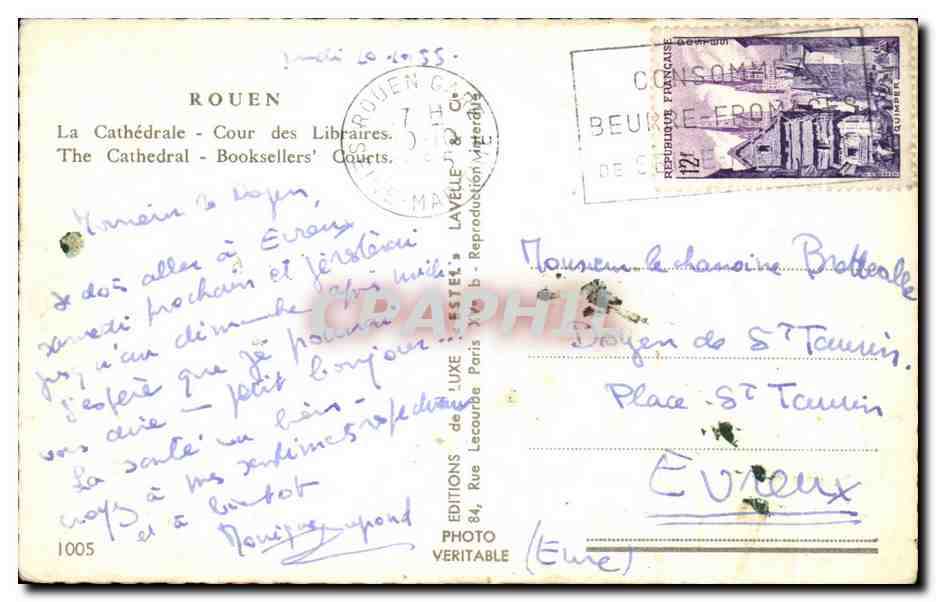 jeudi 20.10.55.
ROUEN
La Cathédrale - Cour des Libraires.
The Cathedral - Booksellers' Courts.
Monsieur le Doyen,
Je dois aller à Evreux
samedi prochain et j'y resterai
jusqu'au dimanche après midi.
J'espère que je pourrai
vous dire - petit bonjour...
La santé va bien -
croyez à mes sentiments respectueux
et à bientôt
Monique
1005
ROUEN GARE
7 H
CONSOMMEZ
BEURRE-FROMAGES
DE
REPUBLIQUE FRANÇAISE
POSTES
QUIMPER
12F
EDITIONS de LUXE « ESTEL » LAVELLE & Cie
84, Rue Lecourbe Paris XVe b - Reproduction Interdite
PHOTO
VERITABLE
CPAPHIL
Monsieur le chanoine
Doyen de St Taurin.
Place St Taurin
Evreux
(Eure)